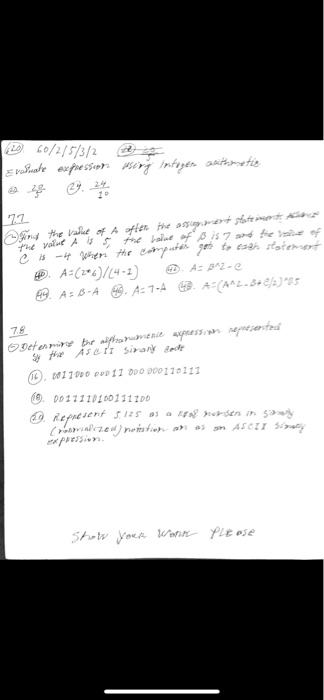 (20) 60/2/5/3/2
Evaluate expression using Integer arithmetic
(24). 24/10
7.7
Find the value of A after the assignment statement.
the value A is 5, the value of B is 7 and the value of
C is -4 when the computer get to each statement
A=(2*6)/(4-1) (42). A=B^2-C
(44). A=B-A (46). A=7-A (48). A=(A^2-B+C/2)*B5
7.8
Determine the alphanumeric expression represented
by the ASCII binary code
(16). 0011000 00011 000 000110111
(18). 0011110100111100
(20). Represent 5.125 as a real number in binary
(normalized) notation an as an ASCII binary
expression.
Show your work Please